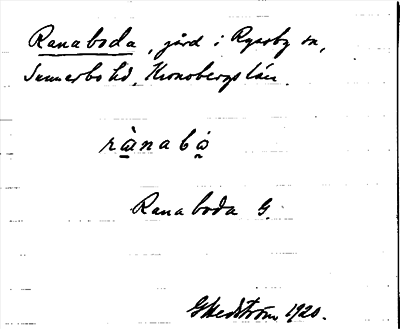 Ranaboda, gård i Ryssby sn,
Sunnerbo hd, Kronobergs län.
rànabọ̀
Ranaboda G.
GHedström 1920.